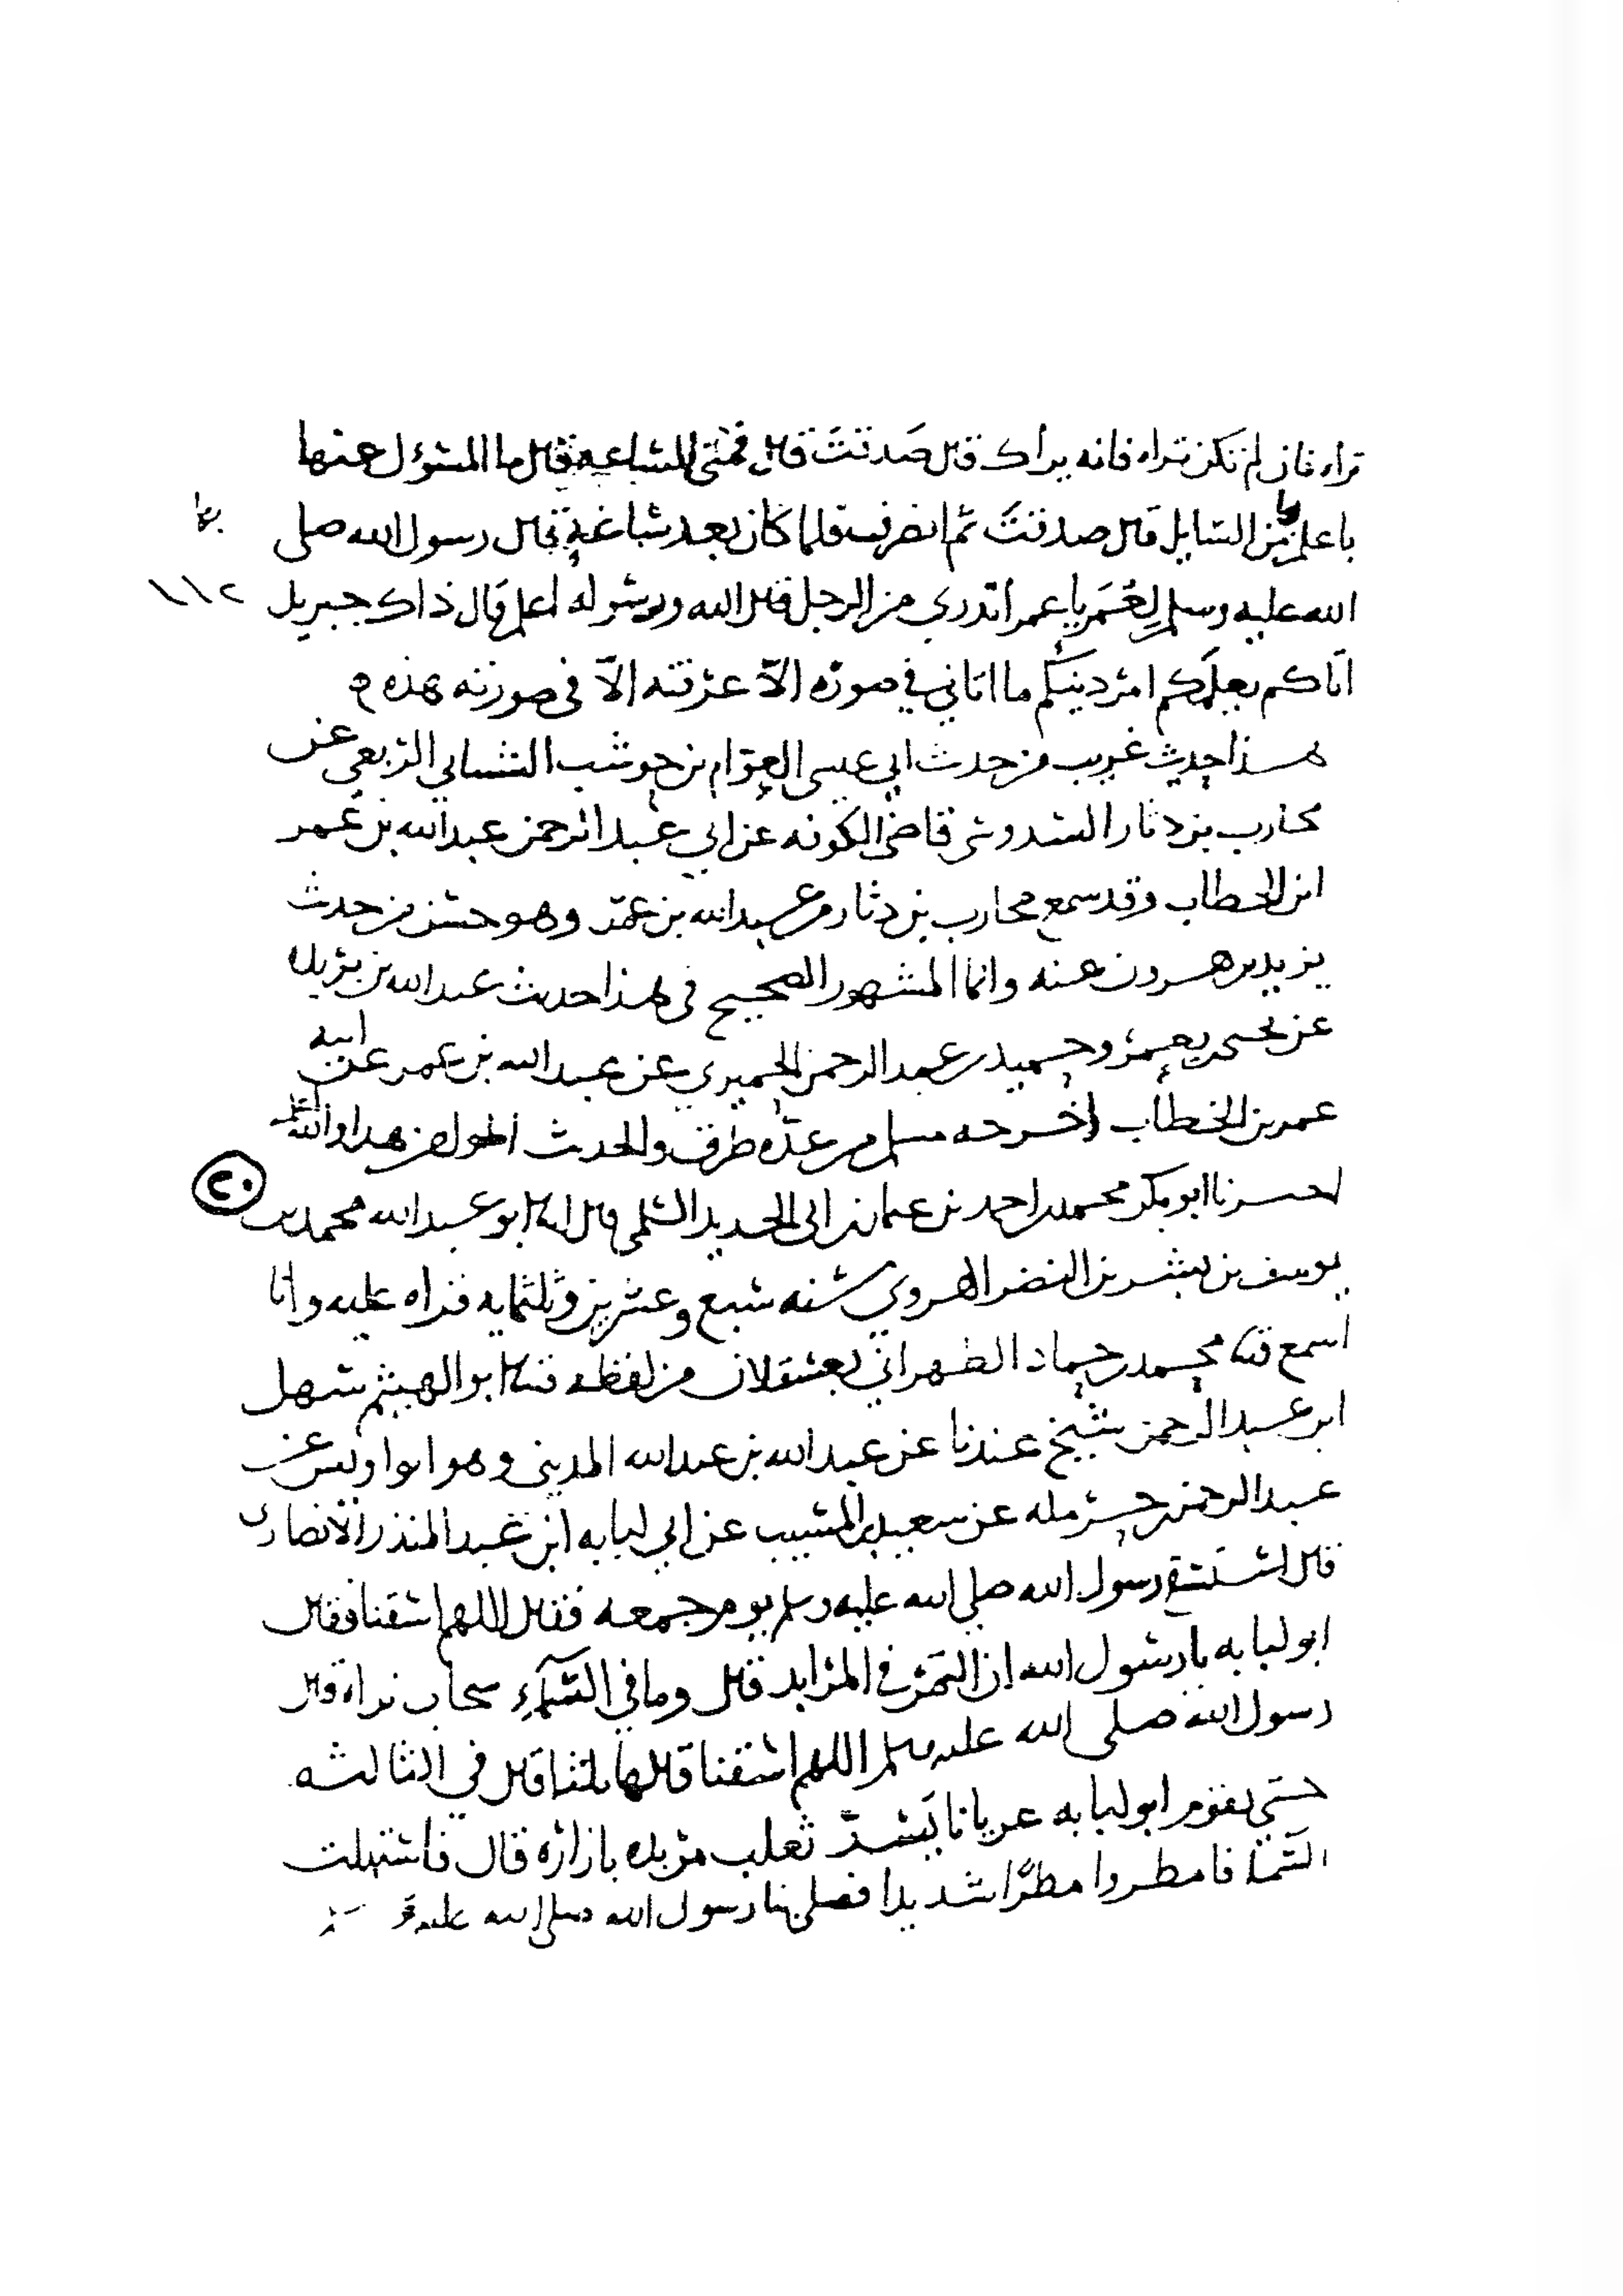 تراه فان لم تكن تراه فانه يراك قال صدقت قال فمتى الساعة قال ما المسؤل عنها
باعلم بها من السايل قال صدقت ثم انصرف فلما كان بعد ساعة قال رسول الله صلى
الله عليه وسلم لعمر يا عمر أتدري من الرجل قال الله ورسوله اعلم قال ذاك جبريل
اتاكم يعلمكم امر دينكم ما اتاني في صورة الا عرفته الا في صورته هذه
هذا حديث غريب من حديث ابي عيسى العوام بن حوشب الشيباني الربعي عن
محارب بن دثار السدوسي قاضي الكوفه عن ابي عبد الرحمن عبد الله بن عمر
ابن الخطاب وقد سمع محارب بن دثار من عبد الله بن عمر وهو حسن من حديث
يزيد بن هرون عنه وانما المشهور الصحيح في هذا حديث عبد الله بن بريدة
عن يحيى بن يعمر وحميد بن عبد الرحمن الحميري عن عبد الله بن عمر عن ابيه
عمر بن الخطاب اخرجه مسلم من عدة طرق والحديث اطول من هذا والله اعلم
اخبرنا ابو بكر محمد بن احمد بن عثمان بن ابي الحديد السلمي قال انا ابو عبد الله محمد بن ٢٠
يوسف بن بشر بن النضر الهروي سنه سبع وعشرين وثلثمايه قراه عليه وانا
اسمع ثنا محمد بن حماد الطهراني بعسقلان من لفظه ثنا ابو الهيثم سهل
ابن عبد الرحمن شيخ عندنا عن عبد الله بن عبد الله المديني وهو ابو اويس عن
عبد الرحمن بن حرمله عن سعيد بن المسيب عن ابي لبابه ابن عبد المنذر الانصاري
قال استسقى رسول الله صلى الله عليه وسلم يوم جمعه فقال اللهم اسقنا فقال
ابو لبابه يا رسول الله ان التمر في المرابد قال وما في السماء سحاب نراه قال
رسول الله صلى الله عليه وسلم اللهم اسقنا قالها ثلثا قال في الثالثه
حتى يقوم ابو لبابه عريانا يسد ثعلب مربده بازاره قال فاستهلت
السما فامطروا مطرا شديدا فصلى بنا رسول الله صلى الله عليه وسلم ثم